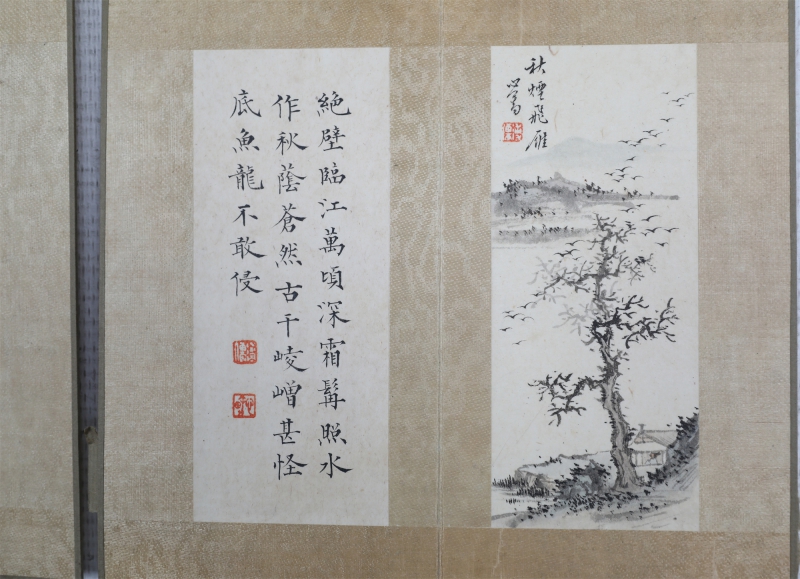 秋煙飛雁
心畬
絕壁臨江萬頃深霜髯照水
作秋蔭蒼然古干崚嶒甚怪
底魚龍不敢侵